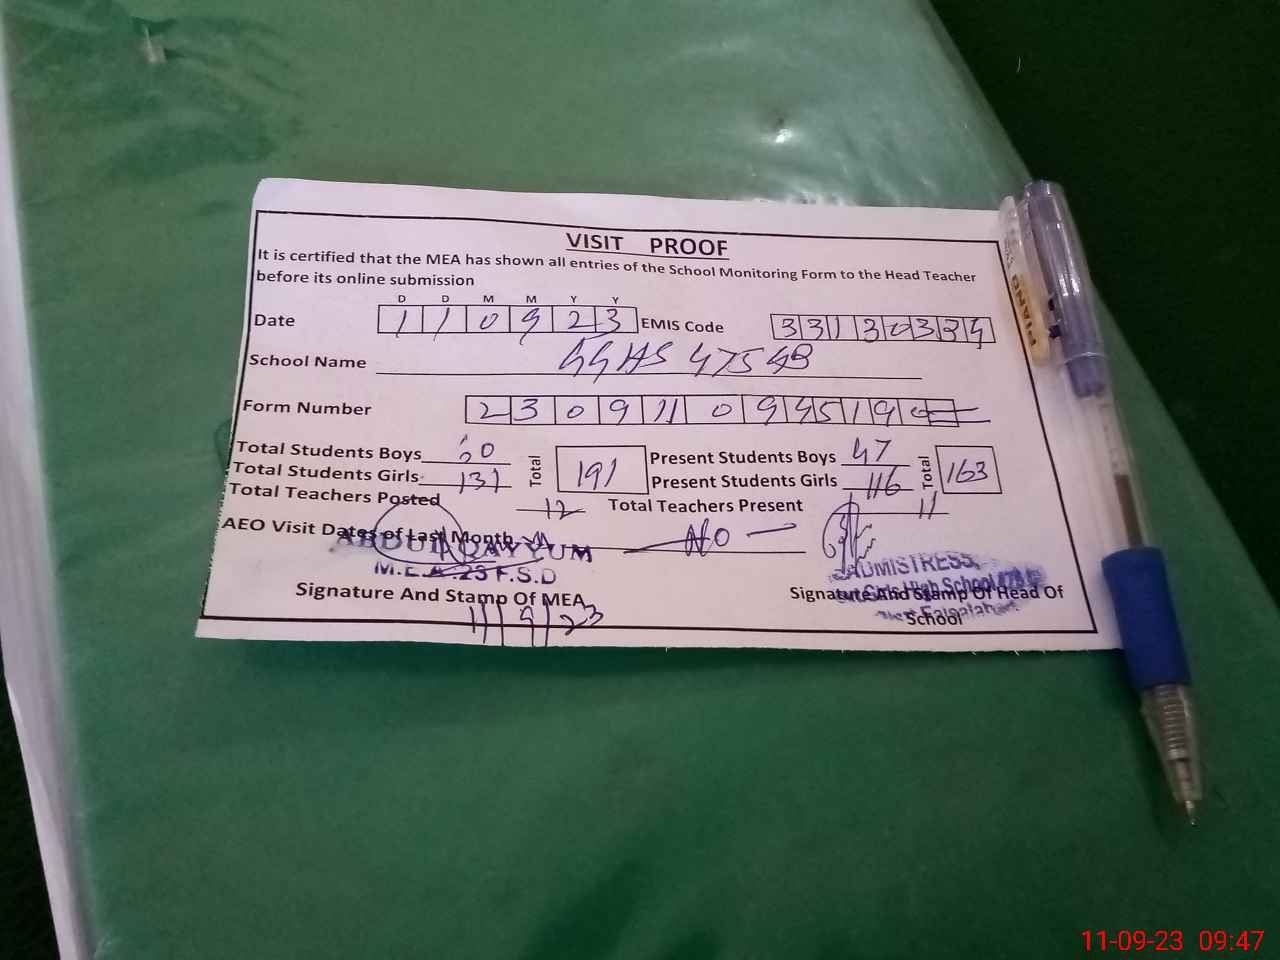 VISIT PROOF
It is certified that the MEA has shown all entries of the School Monitoring Form to the Head Teacher
before its online submission
D D M M Y Y
Date 1 1 0 9 2 3 EMIS Code 3 3 1 3 0 3 3 4
School Name GGHS 475 GB
Form Number 2 3 0 9 11 0 9 45 1 9
Total Students Boys 60 Total 191 Present Students Boys 47 Total 163
Total Students Girls 131 Present Students Girls 116
Total Teachers Posted 12 Total Teachers Present 11
AEO Visit Dates of Last Month NO
ABDUL QAYYUM
M.E.A.23 F.S.D
Signature And Stamp Of MEA
11/9/23
Signature And Stamp Of Head Of
School
PIANO
11-09-23 09:47